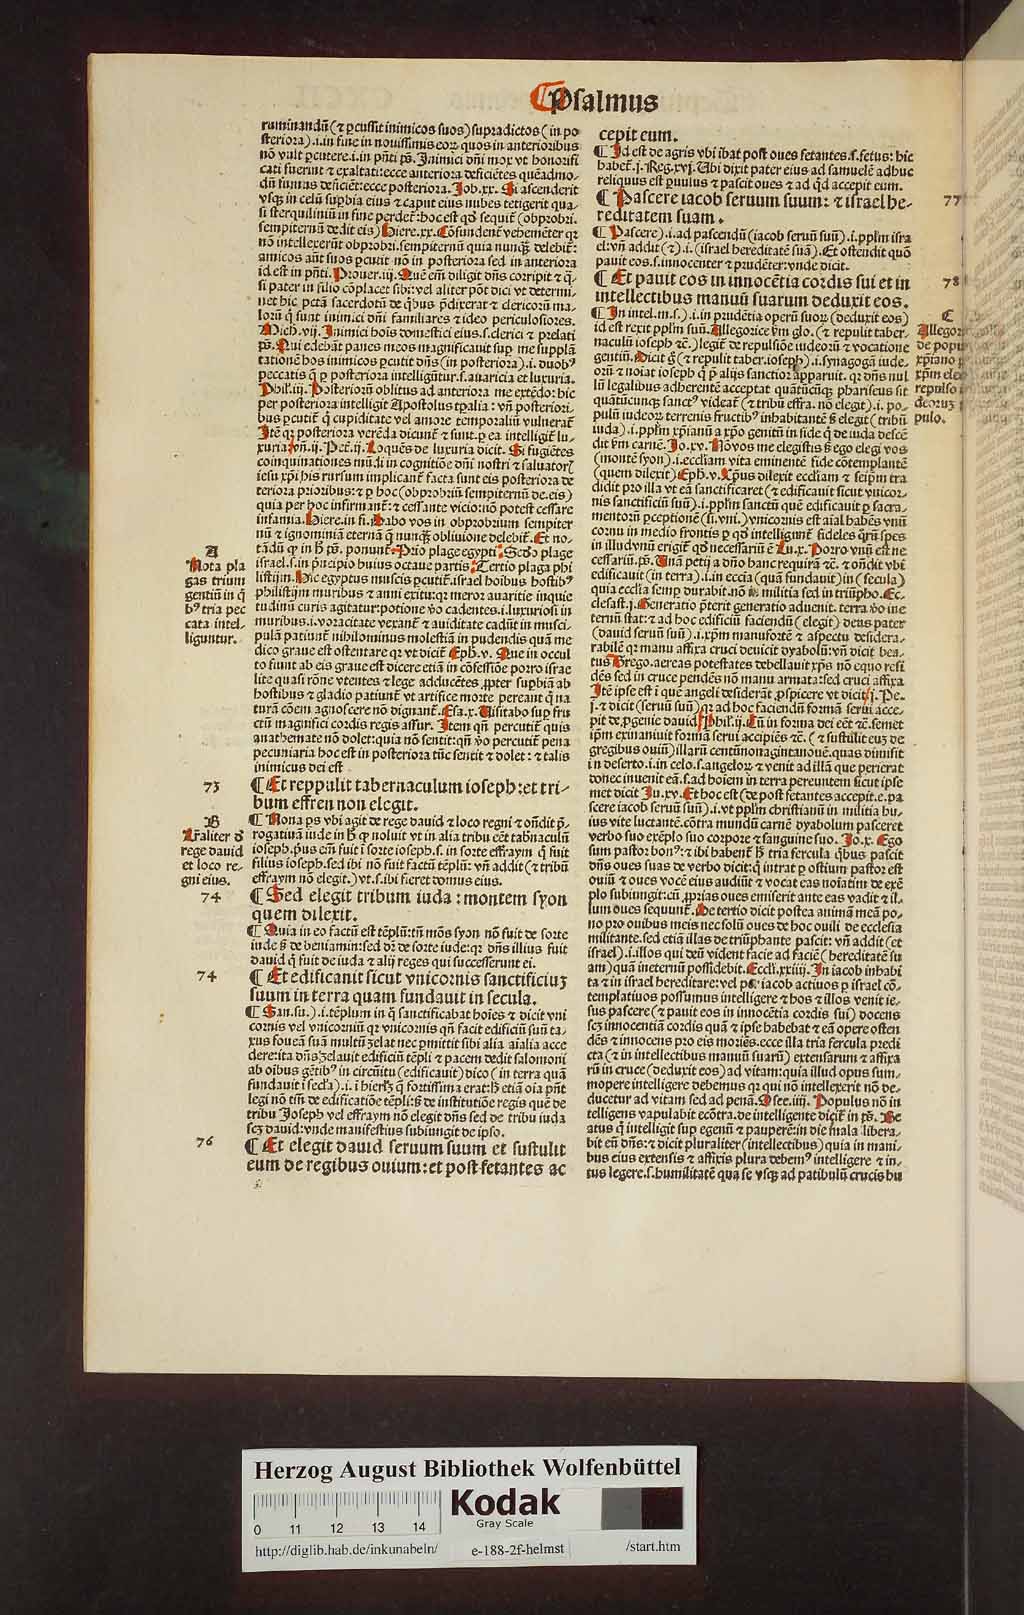 ¶ Psalmus
ruminandū (⁊ ꝑcussit inimicos suos) supradictos (in po
steriora).i.in fine in nouissimis eorꝝ quos in anterioribus
nō vult ꝑcutere.i.in pn̄ti ps̄. Inimici dn̄i mox vt honorifi
cati fuerint ⁊ exaltati:ecce anteriora deficiētes quēadmo-
dū fumus deficiēt:ecce posteriora. Job.xx. Si ascenderit
vsqꝫ in celū suꝑbia eius ⁊ caput eius nubes tetigerit qua-
si sterquiliniū in fine perdet̄:hoc est qd̓ sequit̄ (obprobri.
sempiternū dedit eis) Hiere.xx. Cōfundent̄ vehemēter qꝛ
nō intellexerūt obprobri.sempiternū quia nunqꝫ delebit̄:
amicos aūt suos ꝑcutit nō in posteriora sed in anteriora
id est in pn̄ti. Prouer.iij. Quē em̄ diligit dn̄s corripit ⁊ q̄-
si pater in filio cōplacet sibi:vel aliter pōt dici vt determi-
net hic pctā sacerdotū de qͥbus p̄dixerat ⁊ clericorū ma-
lorū q̄ sunt inimici dn̄i familiares ⁊ ideo periculosiores.
Mich.vij. Inimici hoīs domestici eius.s.clerici ⁊ prelati
ps̄. Qui edebāt panes meos magnificauit suꝑ me supplā
tationē hos inimicos ꝑcutit dn̄s (in posteriora).i. duobꝰ
peccatis q̄ ꝑ posteriora intelligūtur.s.auaricia et luxuria.
Phil'.iij. Posteriorū oblitus ad anteriora me extēdo:hic
per posteriora intelligit Apostolus tꝑalia: vn̄ posteriori-
bus ꝑcutit̄ q̄ cupiditate vel amore temporaliū vulnerat̄
Itē qꝛ posteriora verēda dicunt̄ ⁊ sunt.ꝑ ea intelligit̄ lu-
xuria vn̄.ij. Pet̄.ij. Loquēs de luxuria dicit. Si fugiētes
coinquinationes mūdi in cognitiōe dn̄i nostri ⁊ saluator̄
iesu xp̄i his rursum implicant̄ facta sunt eis posteriora de
teriora prioribus:⁊ ꝑ hoc (obprobriū sempiternū de.eis)
quia per hoc infirmant̄:⁊ cessante vicio:nō potest cessare
infamia. Hiere.in fi. Dabo vos in obprobrium sempiter
nū ⁊ ignominiā eternā q̄ nunqꝫ obliuione delebit̄. Et no-
tādū ꝙ in h̄ ps̄. ponunt̄ Prīo plage egypti: Scd̓o plage
israel.s.in p̄ncipio huius octaue partis: Tertio plaga phi
listijm. Hic egyptus muscis ꝑcutit̄.israel hoībus hostibꝰ
philistijm muribus ⁊ anni exitu:qꝛ meror auaritie inquie
tudinū curis agitatur:potione ꝟo cadentes.i.luxuriosi in
muribus.i.voracitate vexant̄ ⁊ auiditate cadūt in musci-
pulā patiunt̄ nihilominus molestiā in pudendis quā me
dico graue est ostentare qꝛ vt dicit̄ Eph̄.v. Que in occul
to fiunt ab eis graue est dicere etiā in cōfessiōe porro israe
lite quasi rōne vtentes ⁊ lege adducētes ꝓpter suꝑbiā ab
hostibus ⁊ gladio patiunt̄ vt artifice morte pereant q̄ na
turā cōem agnoscere nō dignant̄. Esa.x. Uisitabo suꝑ fru
ctū magnifici cordis regis assur. Item qn̄ percutit̄ quis
anathemate nō dolet:quia nō sentit:qn̄ ꝟo percutit̄ pena
pecuniaria hoc est in posteriora tūc sentit ⁊ dolet: ⁊ talis
inimicus dei est
73
¶ Et reppulit tabernaculum ioseph:et tri-
bum effren non elegit.
B
Lr̄aliter d̓
rege dauid
et loco re-
gni eius.
¶ Nona ps vbi agit de rege dauid ⁊ loco regni ⁊ on̄dit p̄-
rogatiuā iude in h̄ ꝙ noluit vt in alia tribu eēt tab̄naculū
ioseph.pͥus em̄ fuit ī sorte ioseph.s. in sorte effraym q̄ fuit
filius ioseph.sed ibi nō fuit factū tēplū: vn̄ addit (⁊ tribū
effraym nō elegit.) vt.s.ibi fieret domus eius.
74
¶ Sed elegit tribum iuda : montem syon
quem dilexit.
¶ Quia in eo factū est tēplū:tn̄ mōs syon nō fuit de sorte
iude s̄ de beniamin:sed dꝛ de sorte iude:qꝛ dn̄s illius fuit
dauid q̄ fuit de iuda ⁊ alij reges qui successerunt ei.
74
¶ Et edificauit sicut vnicornis sanctificiuꝫ
suum in terra quam fundauit in secula.
¶ San.su.).i.tēplum in q̄ sanctificabat hoīes ⁊ dicit vni
cornis vel vnicorniū qꝛ vnicornis qn̄ facit edificiū suū ta-
xus foueā suā multū zelat nec ꝑmittit sibi alia aīalia acce
dere:ita dn̄s zelauit edificiū tēpli ⁊ pacem dedit salomoni
ab oībus gētibꝰ in circūitu (edificauit) dico (in terra quā
fundauit ī secl'a).i. ī hierl̄m q̄ fortissima erat:h̄ etiā oīa pn̄t
legi nō tm̄ de edificatiōe tēpli:s̄ de institutiōe regis quē de
tribu Joseph vel effraym nō elegit dn̄s sed de tribu iuda
scꝫ dauid:vnde manifestius subiungit de ipso.
76
¶ Et elegit dauid seruum suum et sustulit
eum de gregibus ouium:et post fetantes ac
A
Nota pla
gas trium
gentiū in q̄
bꝰ tria pec
cata intel-
liguntur.
cepit eum.
¶ Id est de agris vbi ibat post oues fetantes.s.fetus: hic
habet̄.j. Reg.xvj. Ubi dixit pater eius ad samuelē adhuc
reliquus est ꝑuulus ⁊ pascit oues ⁊ ad qͥd accepit eum.
77
¶ Pascere iacob seruum suum: ⁊ israel he-
reditatem suam.
¶ Pascere).i.ad pascendū (iacob seruū suū).i.pplm isra
el:vn̄ addit (⁊).i.(israel hereditatē suā). Et ostendit quō
pauit eos.s.innocenter ⁊ prudēter:vnde dicit.
78
¶ Et pauit eos in innocētia cordis sui et in
intellectibus manuū suarum deduxit eos.
¶ In intel.m.s.).i.in prudētia operū suorꝝ (deduxit eos)
id est rexit pplm suū. Allegorice ꝟm glo. (⁊ repulit taber-
naculū ioseph ⁊c̄.) legit̄ de repulsiōe iudeorū ⁊ vocatione
gentiū. Dicit q̄ (⁊ repulit taber.ioseph).i.synagogā iude-
orū ⁊ noīat ioseph q̄ p̄ alijs sanctior apparuit. qꝛ dn̄s nul
lū legalibus adherentē acceptat quātūcūqꝫ phariseus sit
quātūcunqꝫ sanctꝰ videat̄ (⁊ tribū effra. nō elegit).i. po-
pulū iudeorꝝ terrenis fructibꝰ inhabitantē s̄ elegit (tribū
iuda).i.pplm xp̄ianū a xp̄o genitū in fide q̄ de iuda descē
dit ꝟm carnē. Jo.xv. Nō vos me elegistis s̄ ego elegi vos
(montē syon).i.eccl̄iam vita eminentē fide cōtemplantē
(quem dilexit) Eph̄.v. Xp̄us dilexit eccl̄iam ⁊ seip̄m tra
didit pro illa vt eā sanctificaret (⁊ edificauit sicut vnicor-
nis sanctificiū suū).i.pplm sanctū quē edificauit ꝑ sacra-
mentorū ꝑceptionē (si.vni.) vnicornis est aīal habēs vnū
cornu in medio frontis ꝑ qd̓ intelligunt̄ fideles q̄rū spes
in illud vnū erigit̄ qd̓ necessariū ē Lu.x. Porro vnū est ne
cessariū.ps̄. Unā petij a dn̄o hanc requirā ⁊c̄. ⁊ on̄dit vbi
edificauit (in terra).i.in ecc̄ia (quā fundauit) in (secula)
quia eccl̄ia semꝑ durabit.nō in militia sed in triūpho. Ec-
clesast.j. Generatio p̄terit generatio aduenit. terra ꝟo ine
ternū stat:⁊ ad hoc edificiū faciendū (elegit) deus pater
(dauid seruū suū).i.xp̄m manufortē ⁊ aspectu desidera-
rabilē qꝛ manu affixa cruci deuicit dyabolū: vn̄ dicit bea-
tus Grego. aereas potestates debellauit xp̄s nō equo resi
dēs sed in cruce pendēs nō manu armata:sed cruci affixa
Itē ipse est ī quē angeli desiderāt ꝓspicere vt dicit̄ j. Pe.
j. ⁊ dicit (seruū suū) qꝛ ad hoc faciendū formā serui acce-
pit de ꝓgenie dauid Phil'.ij. Cū in forma dei eēt ⁊c̄.semet
ip̄m exinaniuit formā serui accipiēs ⁊c̄. (⁊ sustulit euꝫ de
gregibus ouiū) illarū centū nonagintanouē.quas dimisit
in deserto.i.in celo.s.angelorꝝ ⁊ venit ad illā que perierat
donec inuenit eā.s.ad hoīem in terra pereuntem sicut ipse
met dicit Lu.xv. Et hoc est (de post fetantes accepit.e.pa
scere iacob seruū suū).i.vt pplm christianū in militia hu-
ius vite luctantē.cōtra mundū carnē dyabolum pasceret
verbo suo exēplo suo corpore ⁊ sanguine suo. Jo.x. Ego
sum pastor bonꝰ:⁊ ibi habent̄ h̄ tria fercula qͥbus pascit
dn̄s oues suas de verbo dicit:q̄ intrat ꝑ ostium pastor est
ouiū ⁊ oues vocē eius audiūt ⁊ vocat eas noīatim de exē
plo subiungit:cū ꝓprias oues emiserit ante eas vadit ⁊ il-
lum oues sequunt̄. De tertio dicit postea animā meā po-
no pro ouibus meis nec solū oues de hoc ouili de ecclesia
militante.sed etiā illas de triūphante pascit: vn̄ addit (et
israel).i.illos qui deū vident facie ad faciē (hereditatē su
am) quā ineternū possidebit. Eccl'i.xxiiij. In iacob inhabi
ta ⁊ in israel hereditare:vel per iacob actiuos ꝑ israel cō-
templatiuos possumus intelligere ⁊ hos ⁊ illos venit ie-
sus pascere (⁊ pauit eos in innocētia cordis sui) docens
scꝫ innocentiā cordis quā ⁊ ipse habebat ⁊ eā opere osten
dēs ⁊ innocens pro eis moriēs.ecce illa tria fercula predi
cta (⁊ in intellectibus manuū suarū) extensarum ⁊ affixa
rū in cruce (deduxit eos) ad vitam:quia illud opus sum-
mopere intelligere debemus qꝛ qui nō intellexerit nō de-
ducetur ad vitam sed ad penā. Osee.iiij. Populus nō in
telligens vapulabit ecōtra.de intelligente dicit̄ in ps̄. Be
atus q̄ intelligit sup egenū ⁊ pauperē:in die mala libera-
bit eū dn̄s:⁊ dicit pluraliter (intellectibus) quia in mani-
bus eius extensis ⁊ affixis plura debemꝰ intelligere ⁊ in-
tus legere.s.humilitatē qua se vsqꝫ ad patibulū crucis hu
C
de popu
xp̄iano
xp̄m ele
repulso
deoruꝫ
pulo.
Herzog August Bibliothek Wolfenbüttel
Kodak
Gray Scale
0 11 12 13 14
http://diglib.hab.de/inkunabeln/ e-188-2f-helmst /start.htm